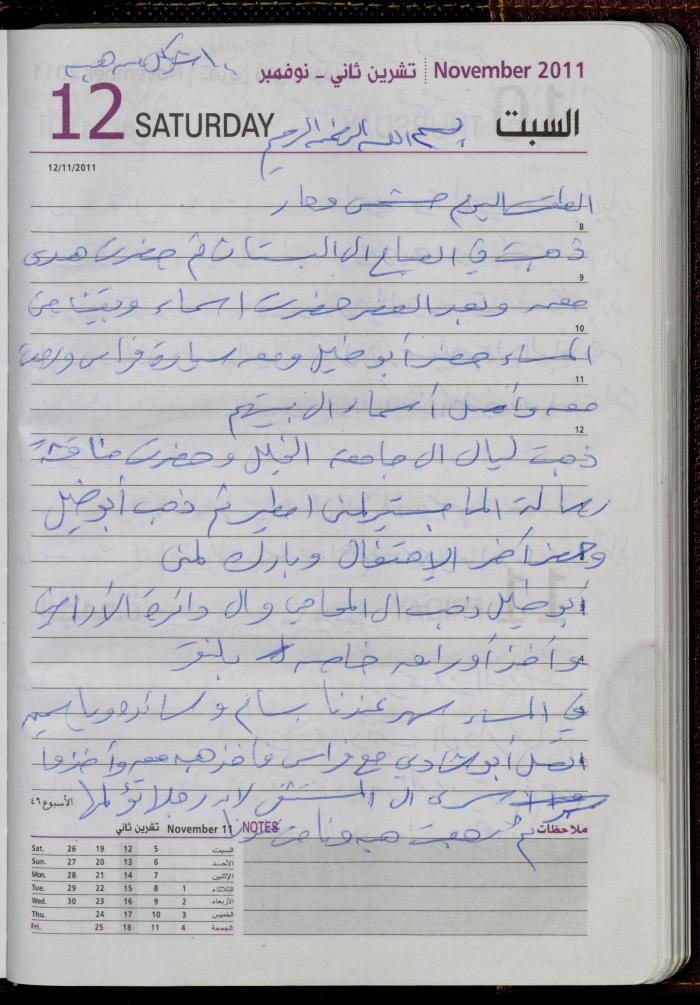 تشرين ثاني - نوفمبر November 2011
12 SATURDAY السبت
بسم الله الرحمن الرحيم
12/11/2011
الطقس اليوم مشمس وحار
8
ذهبت في الصباح الى البستان ثم حضرت هدى
9
معه وبعد العصر حضرت اسماء وبقينا حتى
10
المساء حضر أبو خليل ومعه سيارة فراس
11
معه وأوصل أسماء الى بيتهم
12
ذهبت ليال الى جامعة الخليل وحضرت مناقشة
رسالة الماجستير لمنى اطير ثم ذهب أبو خليل
وحضر آخر الإحتفال وبارك لمنى
أبو خليل ذهب الى المحامي والى دائرة الأراضي
4
وأخذ أوراق خاصة
في المساء سهر عندنا بسام وسائده وياسمين
اتصل أبو شادي مع فراس فأخذ هبه معه وأخذوا
سرى الى المستشفى لان رجلها تؤلمها
ثم رجعت هبه ونامت عندنا
الأسبوع ٤٦
ملاحظات NOTES
November 11 تشرين ثاني
Sat. 26 19 12 5 السبت
Sun. 27 20 13 6 الأحد
Mon. 28 21 14 7 الإثنين
Tue. 29 22 15 8 1 الثلاثاء
Wed. 30 23 16 9 2 الأربعاء
Thu. 24 17 10 3 الخميس
Fri. 25 18 11 4 الجمعة